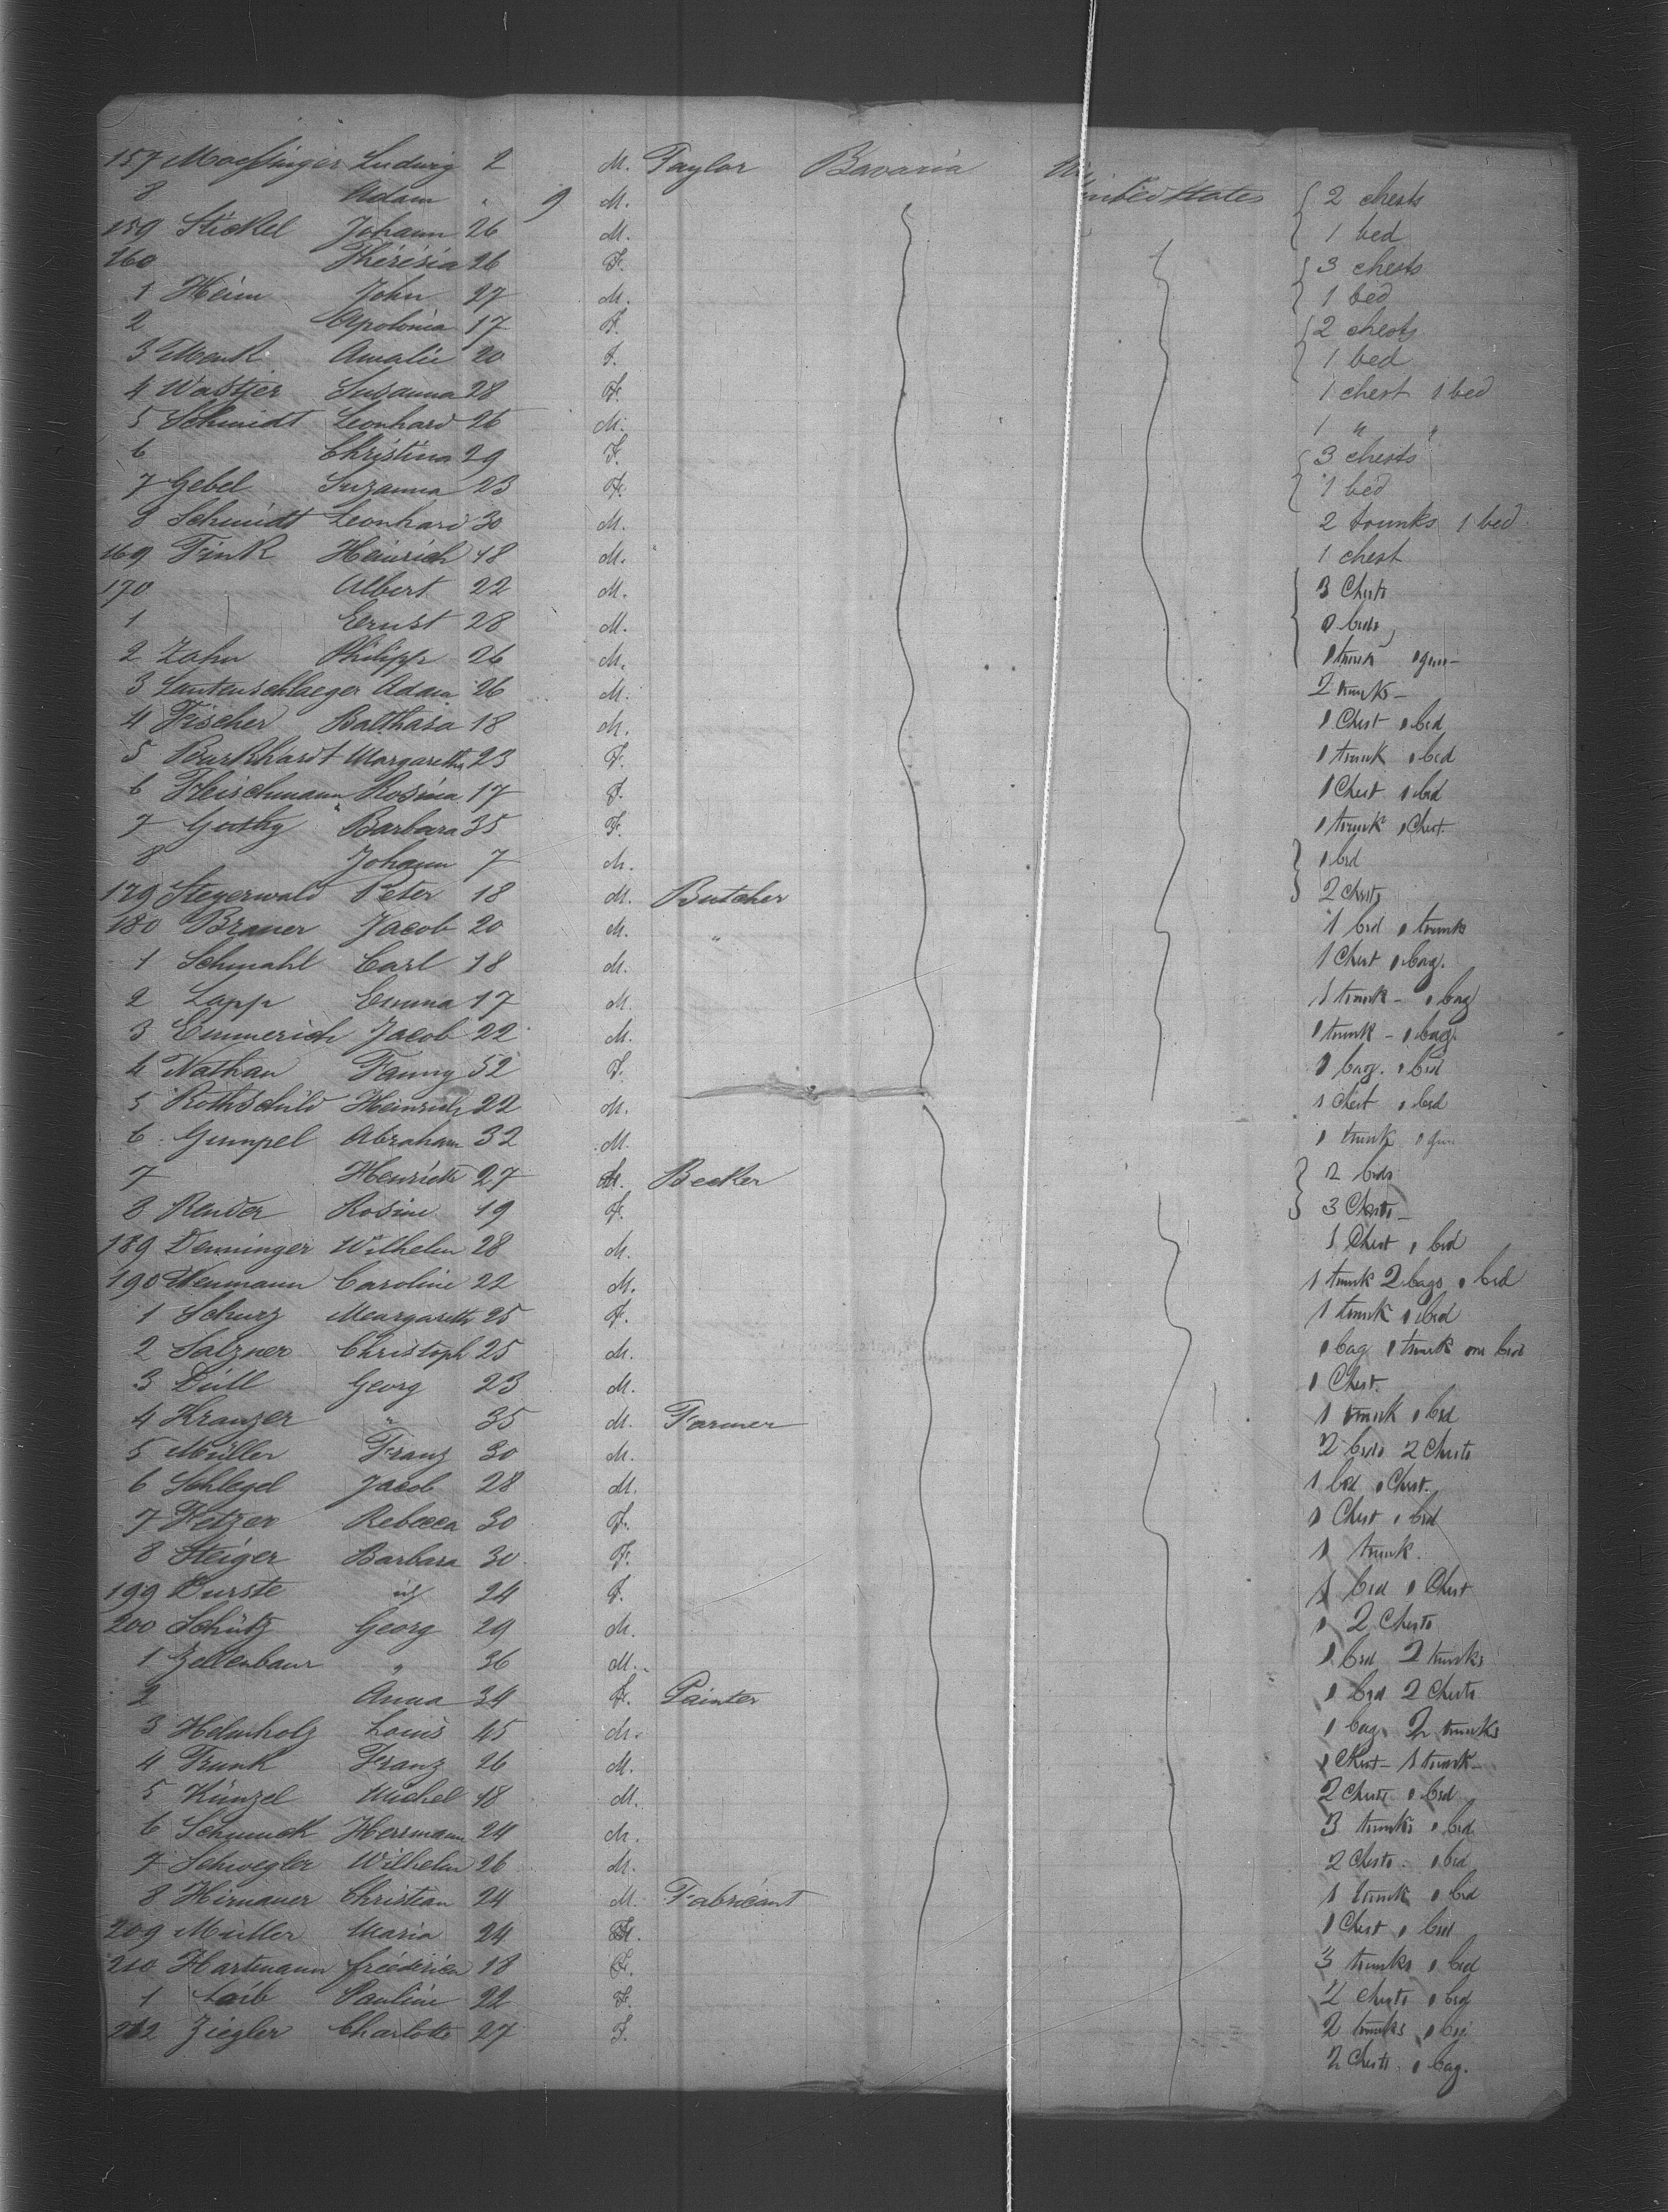 157 Moessinger Ludwig 2 M. Taylor Bavaria United States
8 Adam " 9 M. { 2 chests
159 Stickel Johann 26 M. 1 bed
160 Thérésia 26 F. { 3 chests
1 Heim John 27 M. 1 bed
2 Apolonia 17 F. { 2 chests
3 Amalie 20 F. 1 bed
4 Susanna 28 F. 1 chest 1 bed
5 Schmidt Leonhard 26 M. 1 " "
6 Christina 29 F. { 3 chests
7 Gebel Suzanna 23 F. 1 bed
8 Schmidt Leonhard 30 M. 2 trunks 1 bed
169 Fink Heinrich 18 M. 1 chest
170 Albert 22 M. { 3 Chests
1 Ernst 28 M. beds
2 Zahn Philipp 26 M. 1 trunk
3 Lautenschlaeger Adam 26 M. 2 trunks
4 Fischer Balthasa 18 M. 1 Chest 1 bed
5 Burkhardt Margaretha 23 F. 1 trunk 1 bed
6 Fleischmann Rosina 17 F. 1 Chest 1 bed
7 Barbara 35 F. 1 trunk 1 Chest.
8 Johann 7 M. } 1 bed
179 Stegerwald Peter 18 M. Butcher 2 Chests
180 Braner Jacob 20 M. " 1 bed 1 trunk
1 Schmahl Carl 18 M. 1 Chest 1 bag.
2 Lapp Emma 17 M. 1 trunk - 1 bag
3 Emmerich Jacob 22 M. 1 trunk - 1 bag.
4 Nathan Fanny 52 F. 1 bag. 1 bed
5 Rothschild Heinrich 22 M. 1 Chest 1 bed
6 Gumpel Abraham 32 M. 1 trunk
7 Henriette 27 M. Becker } 2 beds
8 Render Rosine 19 F. 3 Chests
189 Denninger Wilhelm 28 M. 1 Chest 1 bed
190 Caroline 22 M. 1 trunk 2 bags 1 bed
1 Schurz Meargareth 25 F. 1 trunk 1 bed
2 Salzner Christoph 25 M. 1 bag 1 trunk one bed
3 Düll Georg 23 M. 1 Chest.
4 Kranzer " 35 M. Farmer 1 trunk 1 bed
5 Müller Franz 30 M. 2 beds 2 Chests
6 Schlegel Jacob 28 M. 1 bed 1 Chest.
7 Hetzer Rebecca 30 F. 1 Chest 1 bed
8 Steiger Barbara 30 F. 1 trunk.
199 Durste id 24 F. 1 bed 1 Chest
200 Schütz Georg 29 M. 1 2 Chests
1 Zellenbaur " 36 M. 1 bed 2 trunks
2 Anna 34 F. Painter 1 bed 2 Chests
3 Helmholz Louis 45 M. 1 bag 2 trunks
4 Trunk Franz 26 M. 1 Chest - 1 trunk -
5 Künzel Michel 18 M. 2 Chests 1 bed
6 Schmuck Herrmann 24 M. 3 trunks 1 bed
7 Schwegler Wilhelm 26 M. 2 Chests 1 bed
8 Hirnauer Christian 24 M. Fabricant 1 trunk 1 bed
209 Müller Maria 24 F. 1 Chest 1 bed
210 Hartmann 18 F. 3 trunks 1 bed
1 Laib Pauline 22 F. 2 Chests 1 bed
212 Ziegler Charlotte 27 F. 2 trunks 1
2 Chests 1 bag.